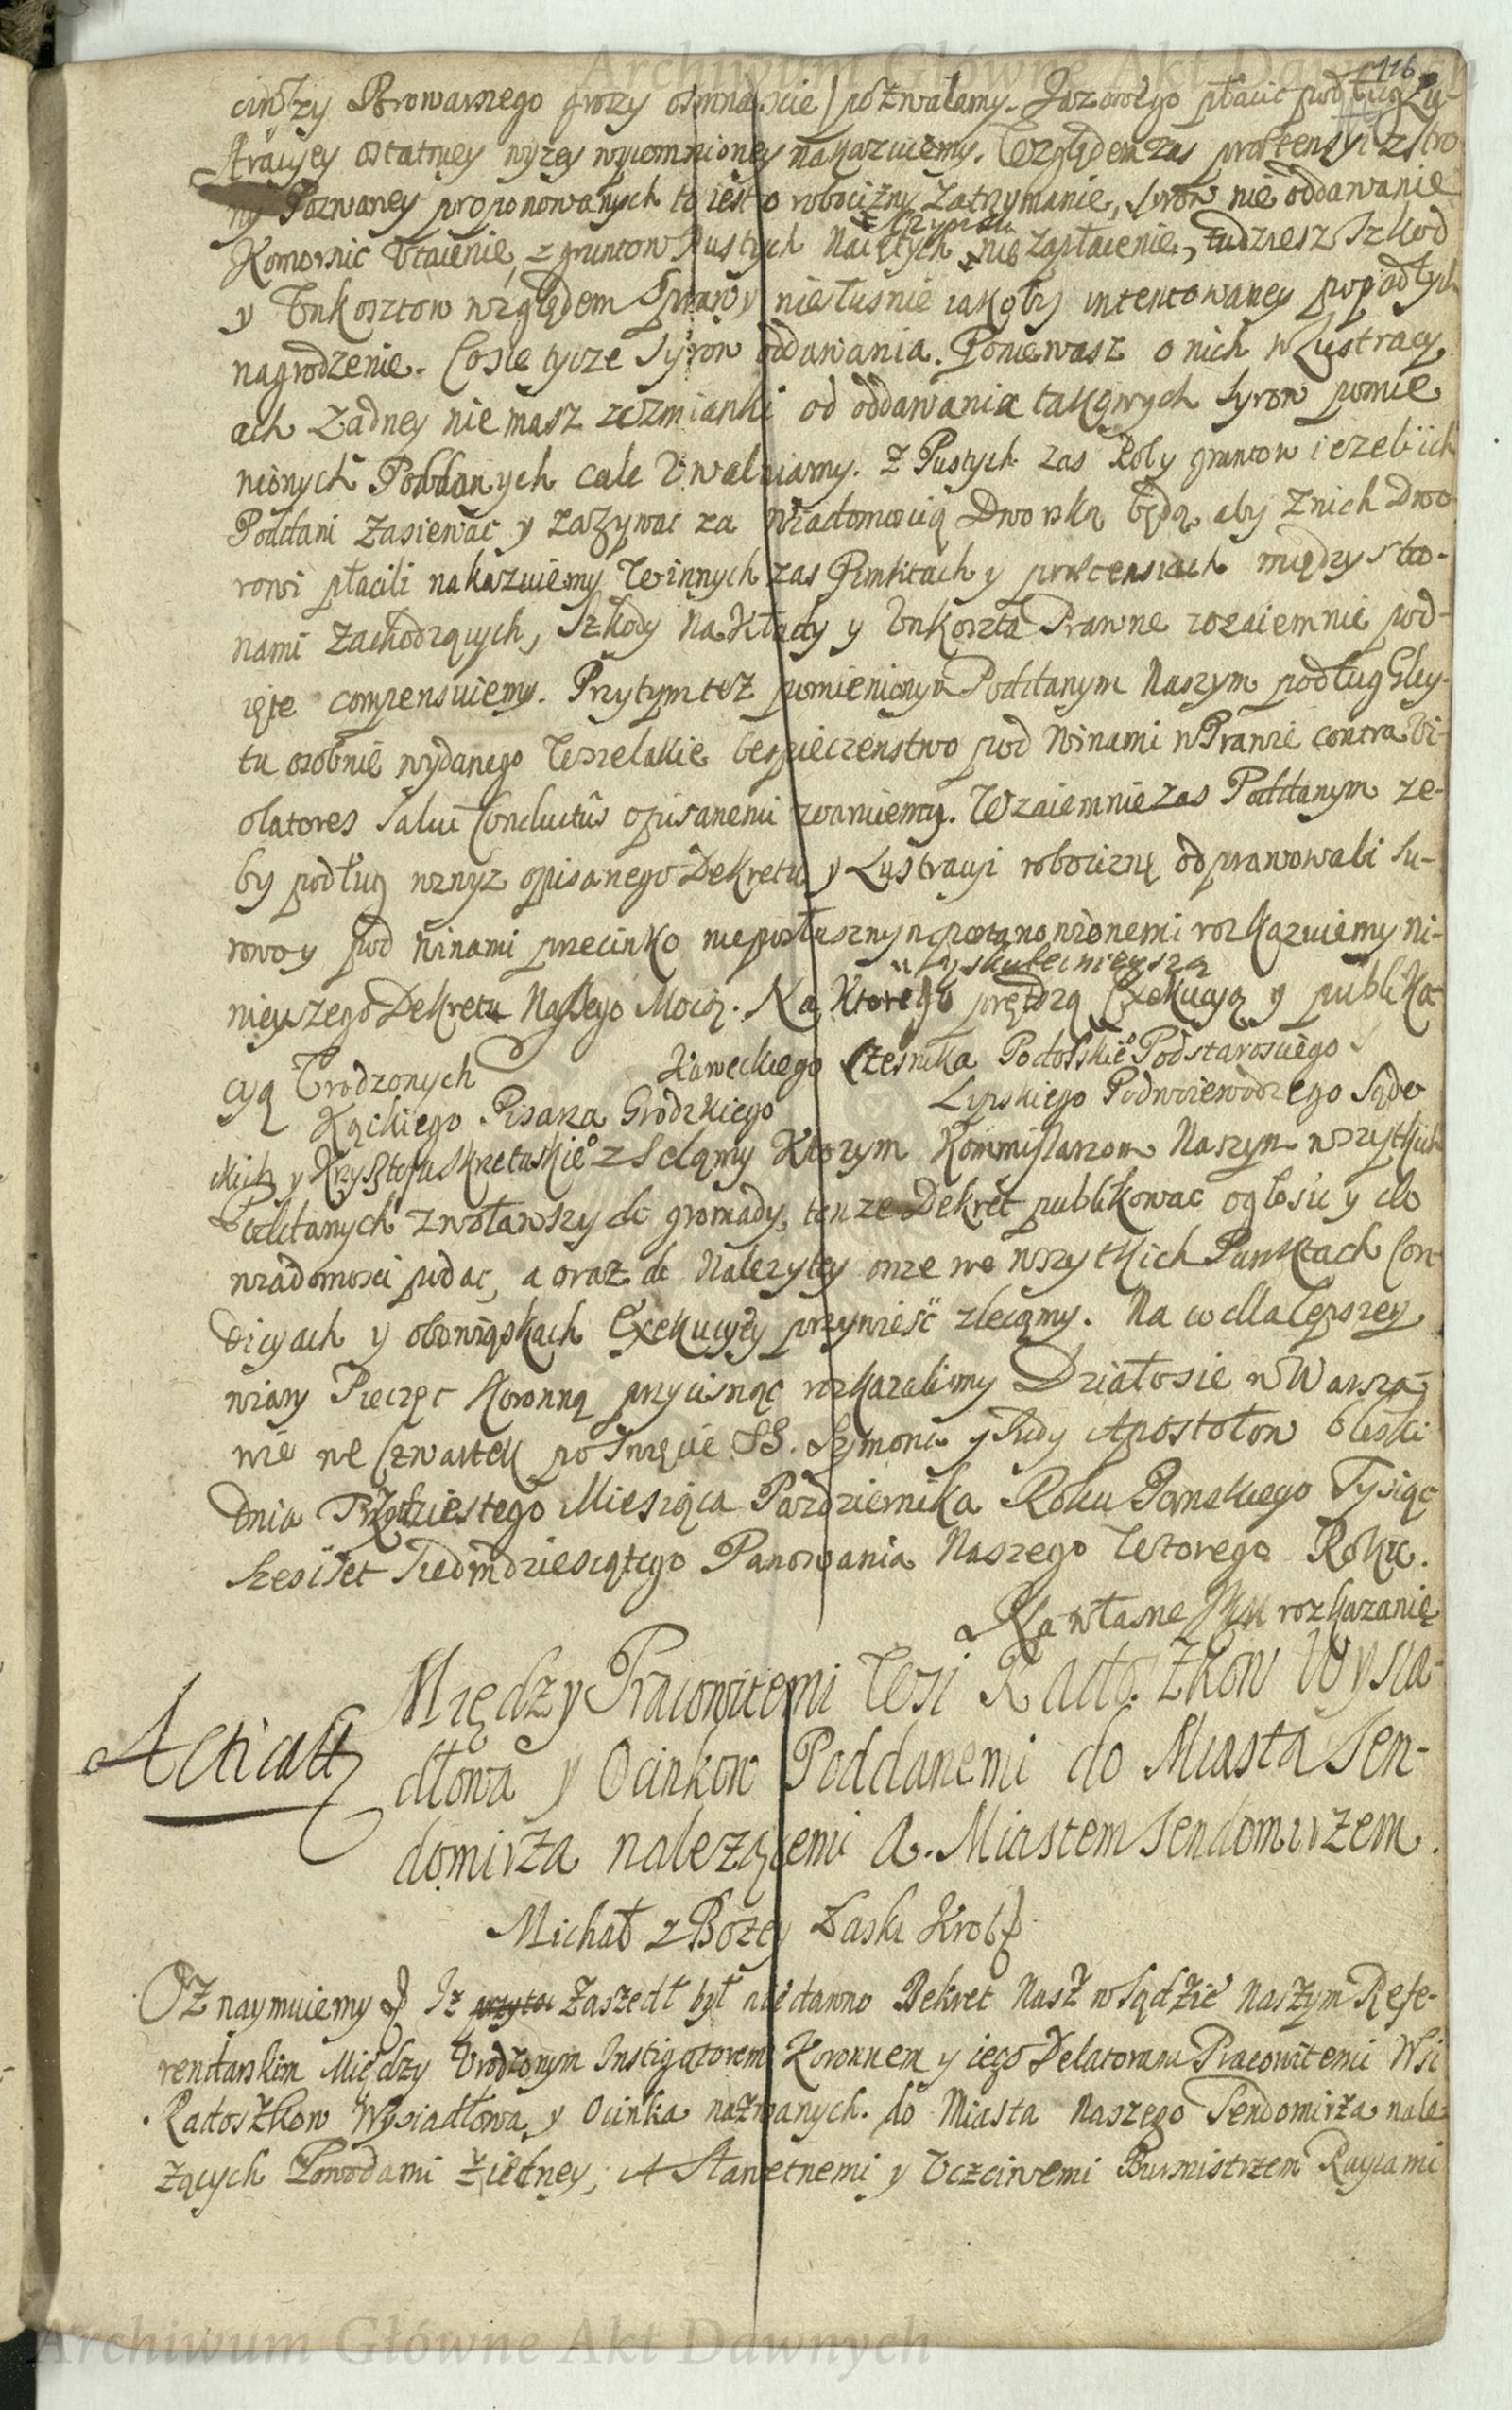 Archiwum Główne Akt Dawnych
116
ciwszy Browarnego grozy osmnascie) pozwalamy. Jazowego płacic podług Lu-
stracyey ostatniey wyzey wspomnioney nakazuiemy. Względem zas praetensyi z stro
ny Pozwaney proponowanych to iest o robocizny zatrzymanie, syrow nie oddawanie
Komornic Utaienie, z gruntow Pustych Naiętych nie zapłacenie, tudziesz Szkod
y Unkosztow względem Sprawy niesłusnie iakoby intentowaney popadłych
nagrodzenie. Co się tycze Syrow oddawania. Poniewasz o nich w Lustracy
ach Zadney nie masz wzmianki od oddawania takowych Syrow pomie
nionych Poddanych cale Uwalniamy. Z Pustych zas Roly gruntow iezeli ich
Poddani Zasiewac y zazywac za wiadomoscią Dworską będą aby z nich Dwo
rowi płacili nakazuiemy W innych zas Punktach y praetensiach między stro-
nami zachodzących, Szkody Nakłady y Unkoszta Prawne wzaiemnie pod-
ięte compensuiemy. Przytym tesz pomienionym Poddanym Naszym podług Gley-
tu osobnie wydanego Wszelakie bespieczenstwo pod Winami w Prawie contra Vi-
olatores Salvi Conductus opisanemi waruiemy. Wzaiemnie zas Poddanym ze-
by podług wzwyz opisanego Dekretu y Lustracyi robociznę odprawowali su-
rowo y pod winami przeciwko nieposłusznym postanowionemi rozkazuiemy ni-
nieyszego Dekretu Naszego Mocą. Na Ktorego prętszą y skutecznieyszą Exekucyą y publika
cyą Urodzonych Kaweckiego Czesnika Podolskie° Podstarosciego
Kąckiego Pisarza Grodzkiego Lipskiego Podwoiewodzego Sądo
mich y Krzysztofa Skretuskie° zsełamy Ktorym Kommissarzom Naszym wszystkich
Poddanych zwoławszy do gromady, ten ze Dekret publikowac ogłosic y do
wiadomosci podac, a oraz do Nalezytey onze we wszytkich Punktach Con-
dicyach y obowiąskach Exekucyey przywieść zlecamy. Na co dla lepszey
wiary Pieczęc Koronną przycisnąc rozkazalismy Działo sie w Warsza-
wie we Czwartek po Swięcie SS. Szymona y Judy Apostołow bliski
Dnia Trzydziestego Miesiąca Pazdziernika Roku Panskiego Tysiąc
Szescset Siedmdziesiątego Panowania Naszego Wtorego Roku.
Na własne JKM rozkazanie
Między Pracowitemi Wsi Radoszkow Wysia-
dłowa y Ocinkow Poddanemi do Miasta Sen-
domirza nalezącemi A. Miastem Sendomirzem.
Michał z Bozey Łaski Krol
Oznaymuiemy Iz zaszedł był niedawno Dekret Nasz w Sądzie Naszym Refe-
rendarskim Między Urodzonym Instigatorem Koronnem y iego Delatorami Pracowitemi Wsi
Radoszkow Wysiadłowa y Ocinka nazwanych do Miasta Naszego Sendomirza nale
zących Powodami z iedney, A Sławetnemi y Uczciwemi Burmistrzem Raycami
Archiwum Główne Akt Dawnych